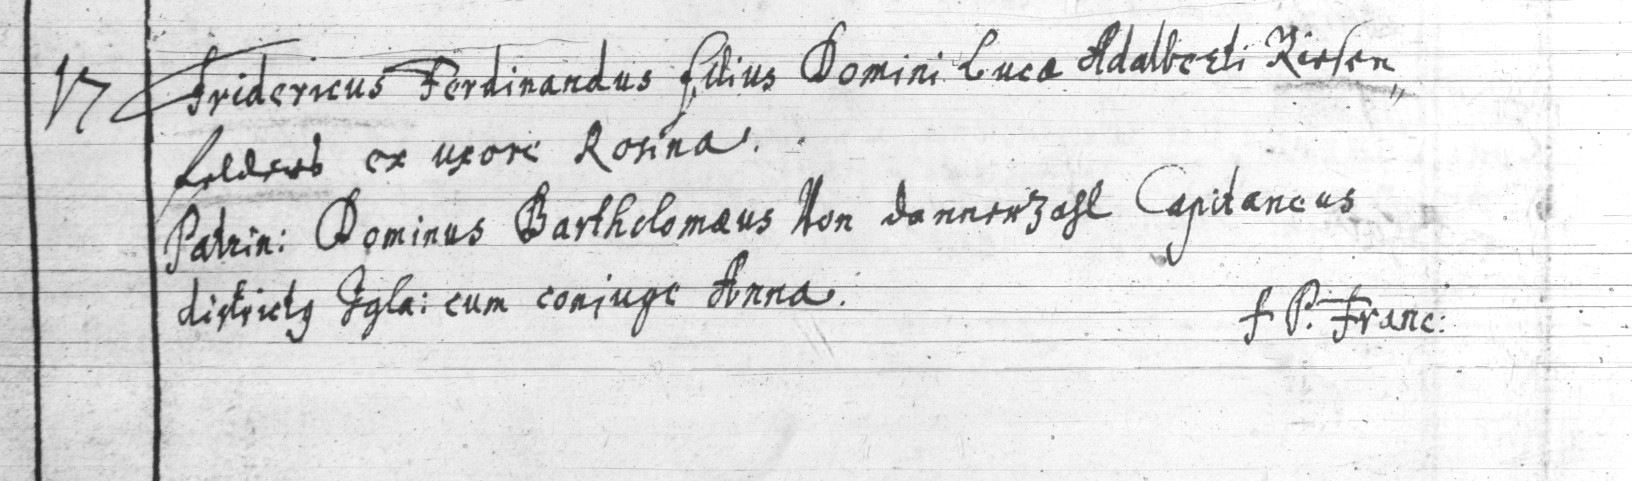 17 Fridericus Ferdinandus filius Domini Lucæ Adalberti Riesen„
felders ex uxore Rosina.
Patrin: Dominus Bartholomæus Von Dannenzahl Capitaneus
districtus Igla: cum conjuge Anna.
f P. Franc: